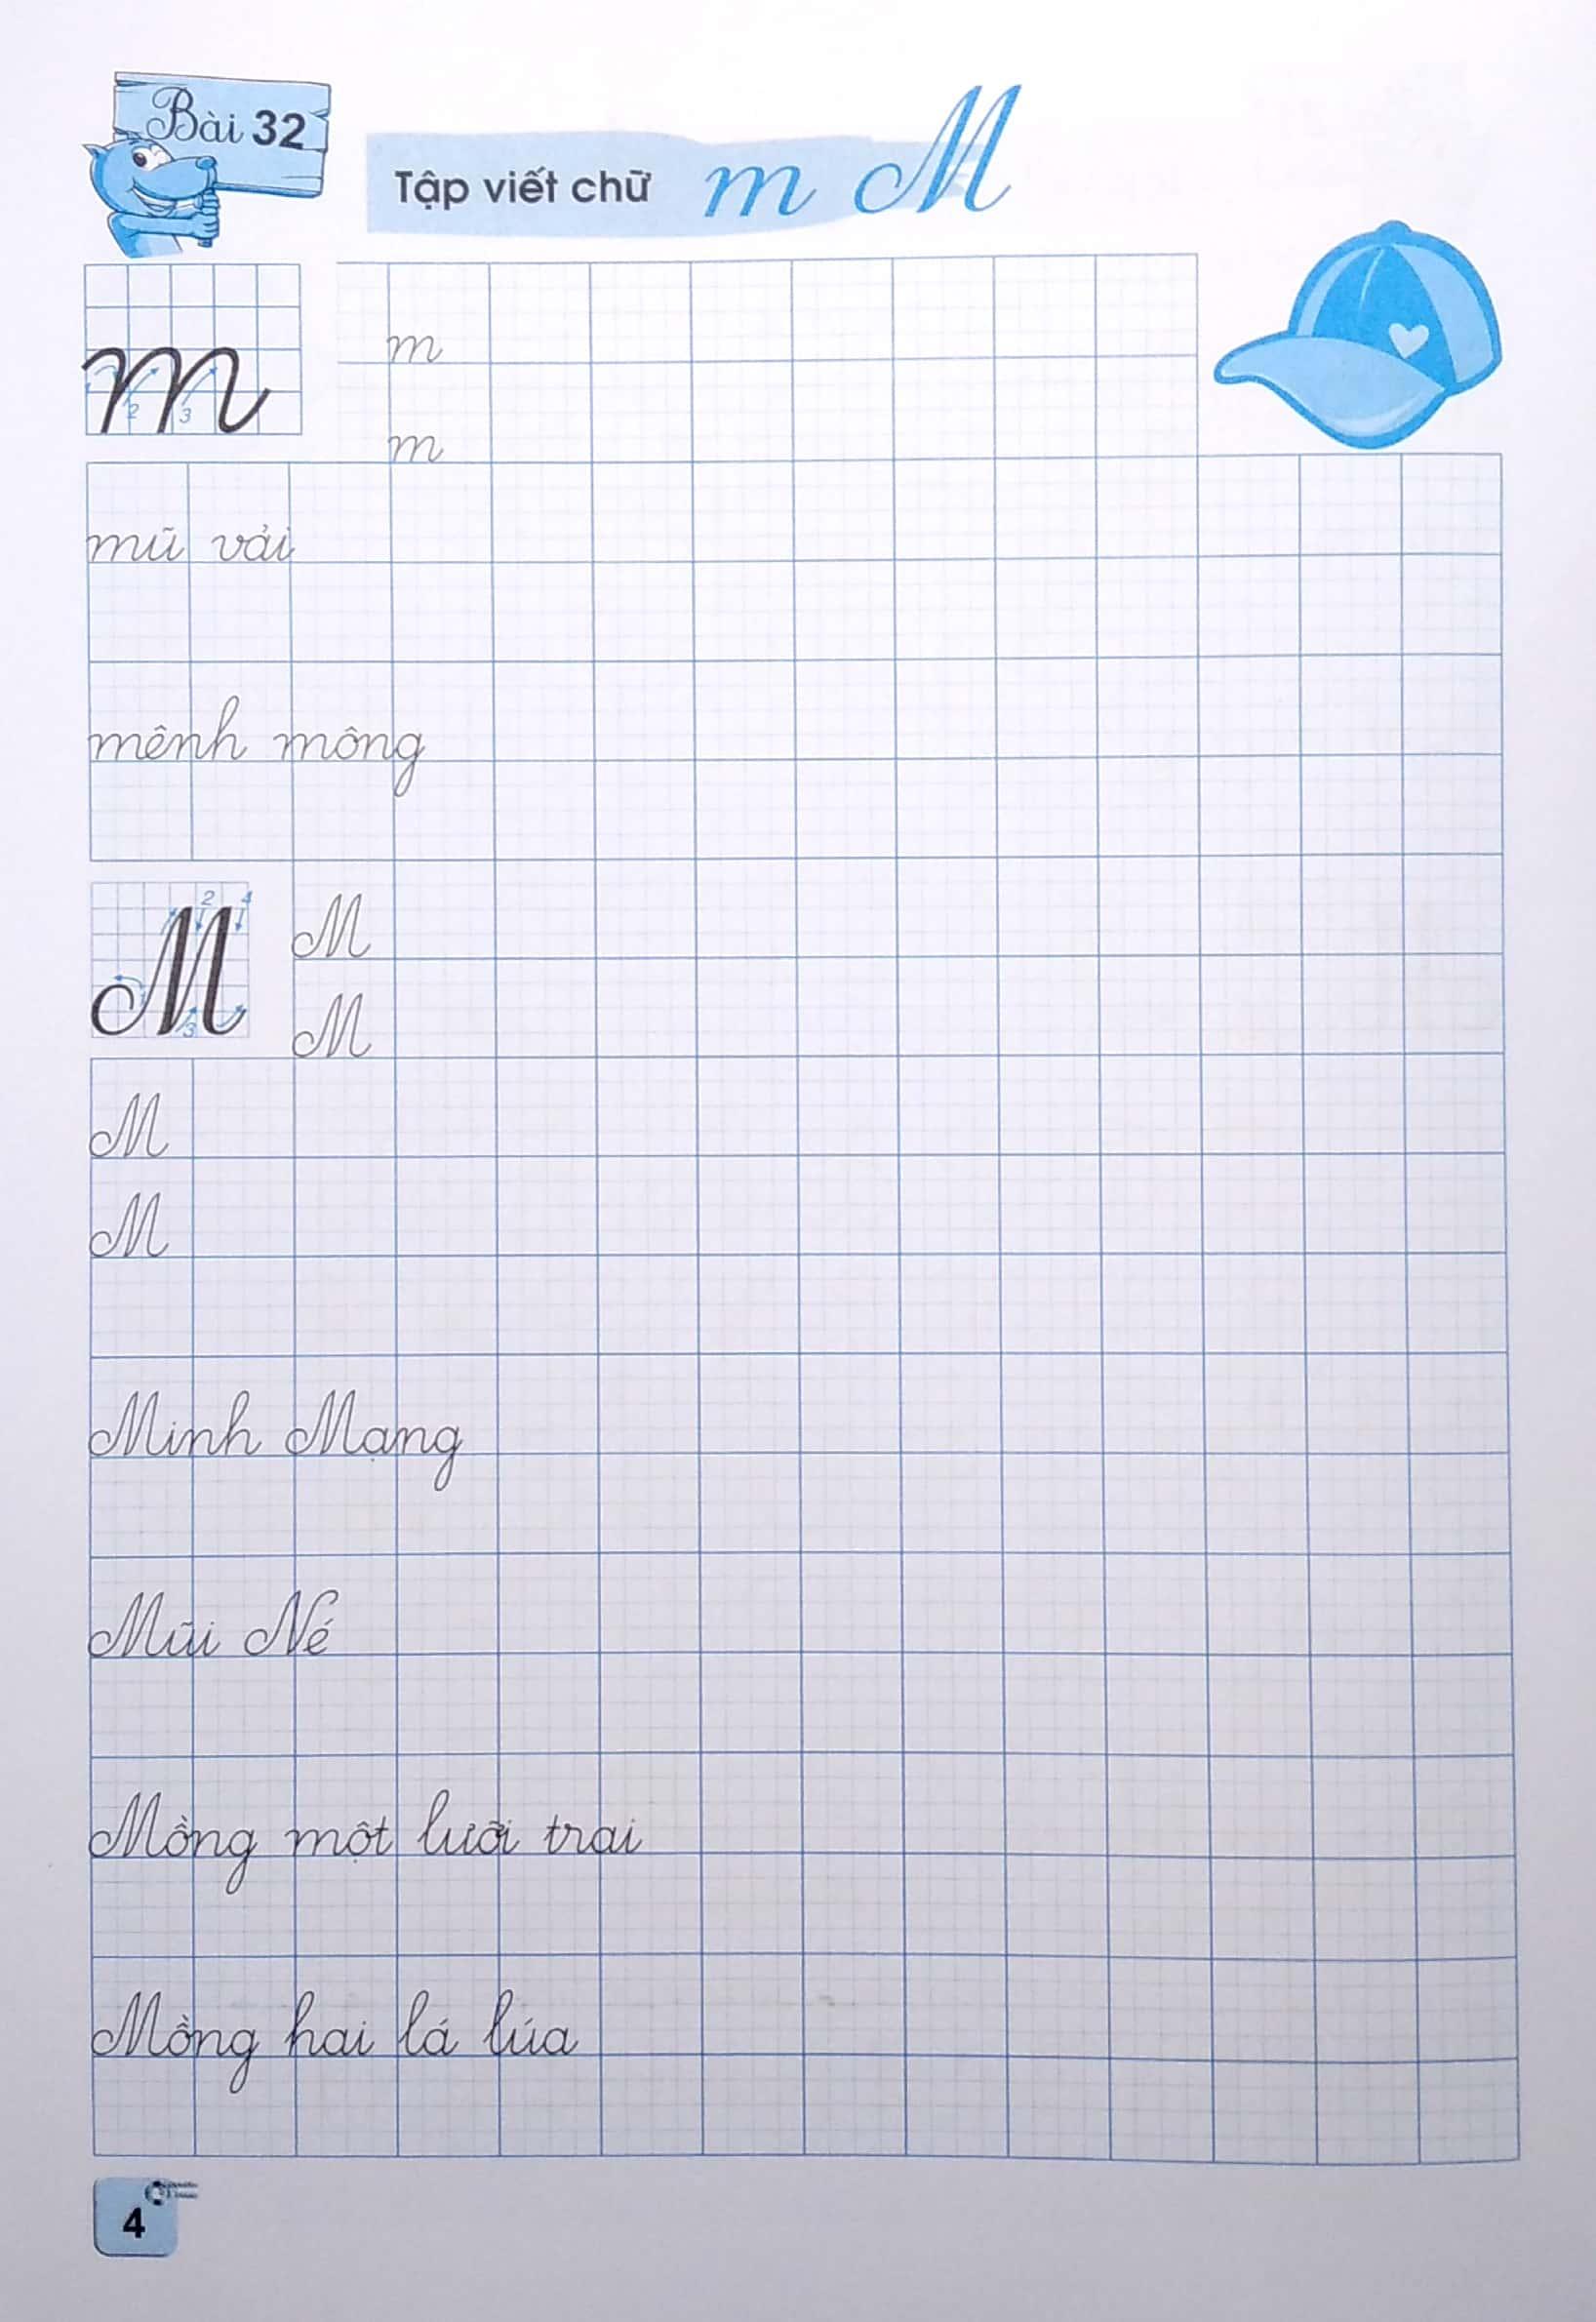 Bài 32
Tập viết chữ m M
m
m
m
2 3
mũ vải
mênh mông
M
2 4
3
M
M
M
M
Minh Mạng
Mũi Né
Mồng một lưỡi trai
Mồng hai lá lúa
4